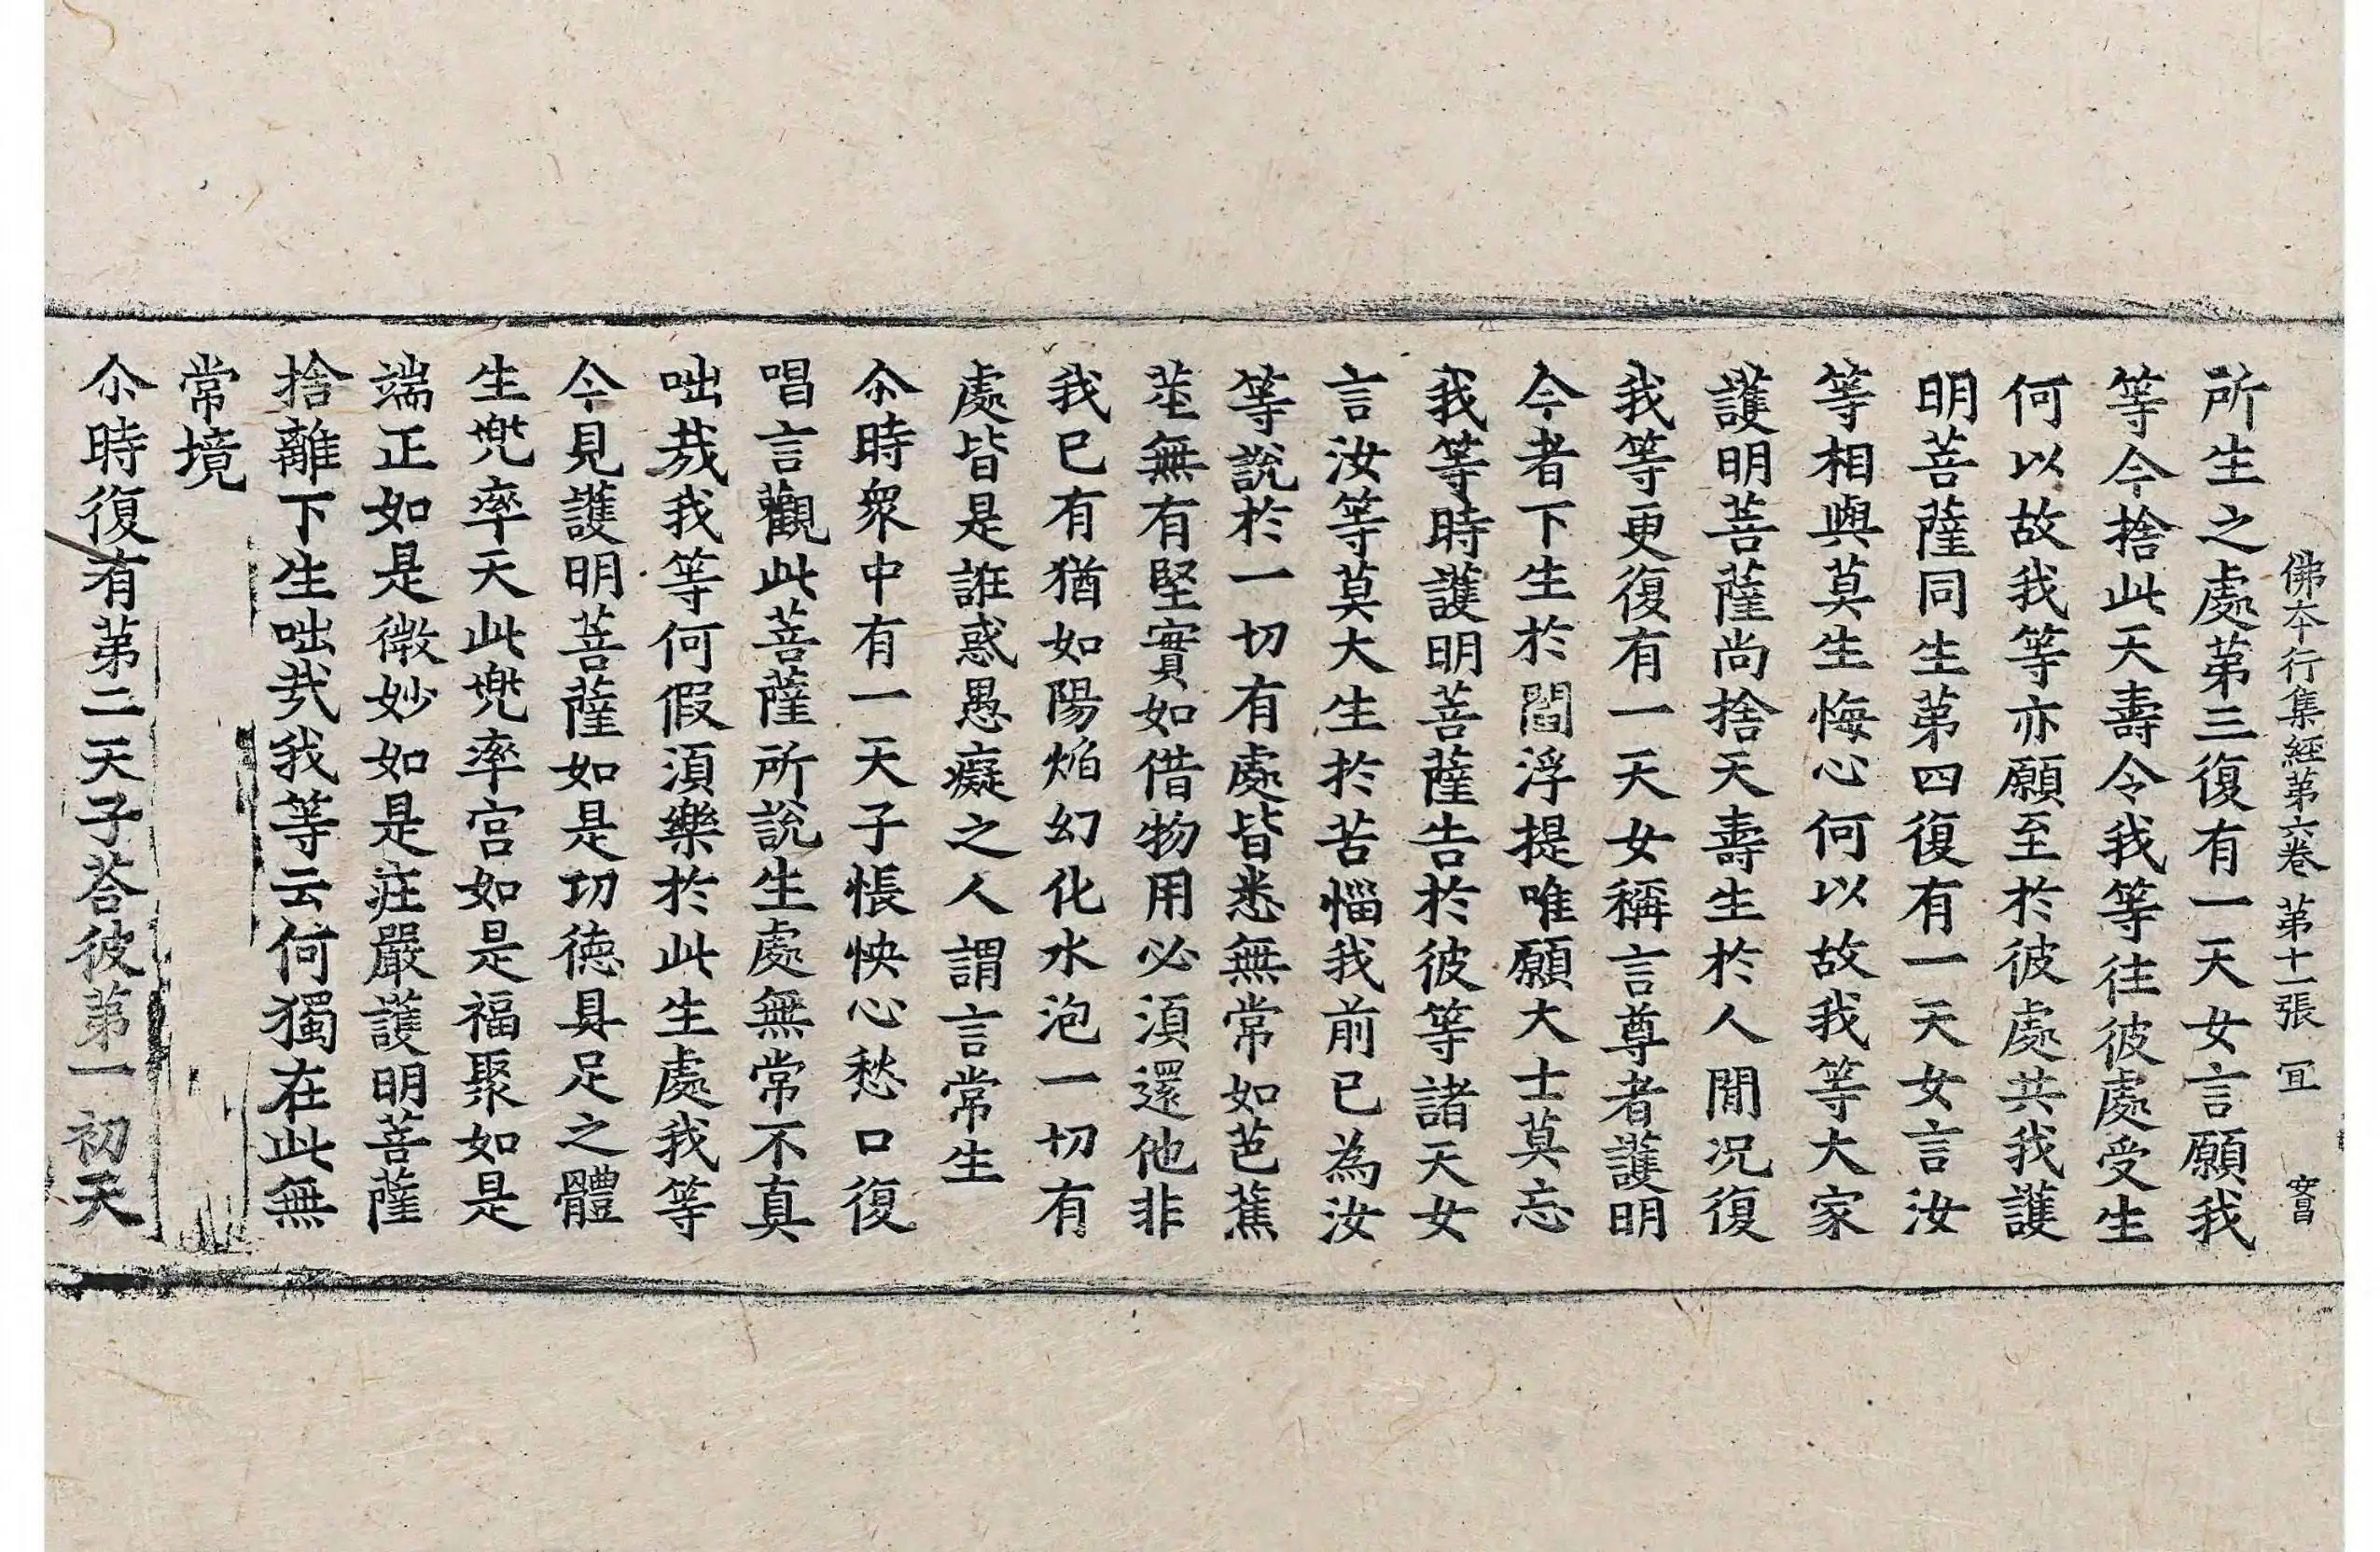 佛本行集經第六卷 第十一張 冝
所生之處第三復有一天女言願我
等今捨此天壽令我等往彼處受生
何以故我等亦願至於彼處共我護
明菩薩同生第四復有一天女言汝
等相與莫生悔心何以故我等大家
護明菩薩尚捨天壽生於人閒况復
我等更復有一天女稱言尊者護明
今者下生於閻浮提唯願大士莫忘
我等時護明菩薩告於彼等諸天女
言汝等莫大生於苦惱我前已為汝
等說於一切有處皆悉無常如芭蕉
莖無有堅實如借物用必湏還他非
我已有猶如陽焰幻化水泡一切有
處皆是誑惑愚癡之人謂言常生
尒時衆中有一天子悵怏心愁口復
唱言觀此菩薩所說生處無常不真
咄㦲我等何假湏樂於此生處我等
今見護明菩薩如是功德具足之體
生兜率天此兜率宫如是福聚如是
端正如是微妙如是莊嚴護明菩薩
捨離下生咄㦲我等云何獨在此無
常境
尒時復有第二天子荅彼第一初天